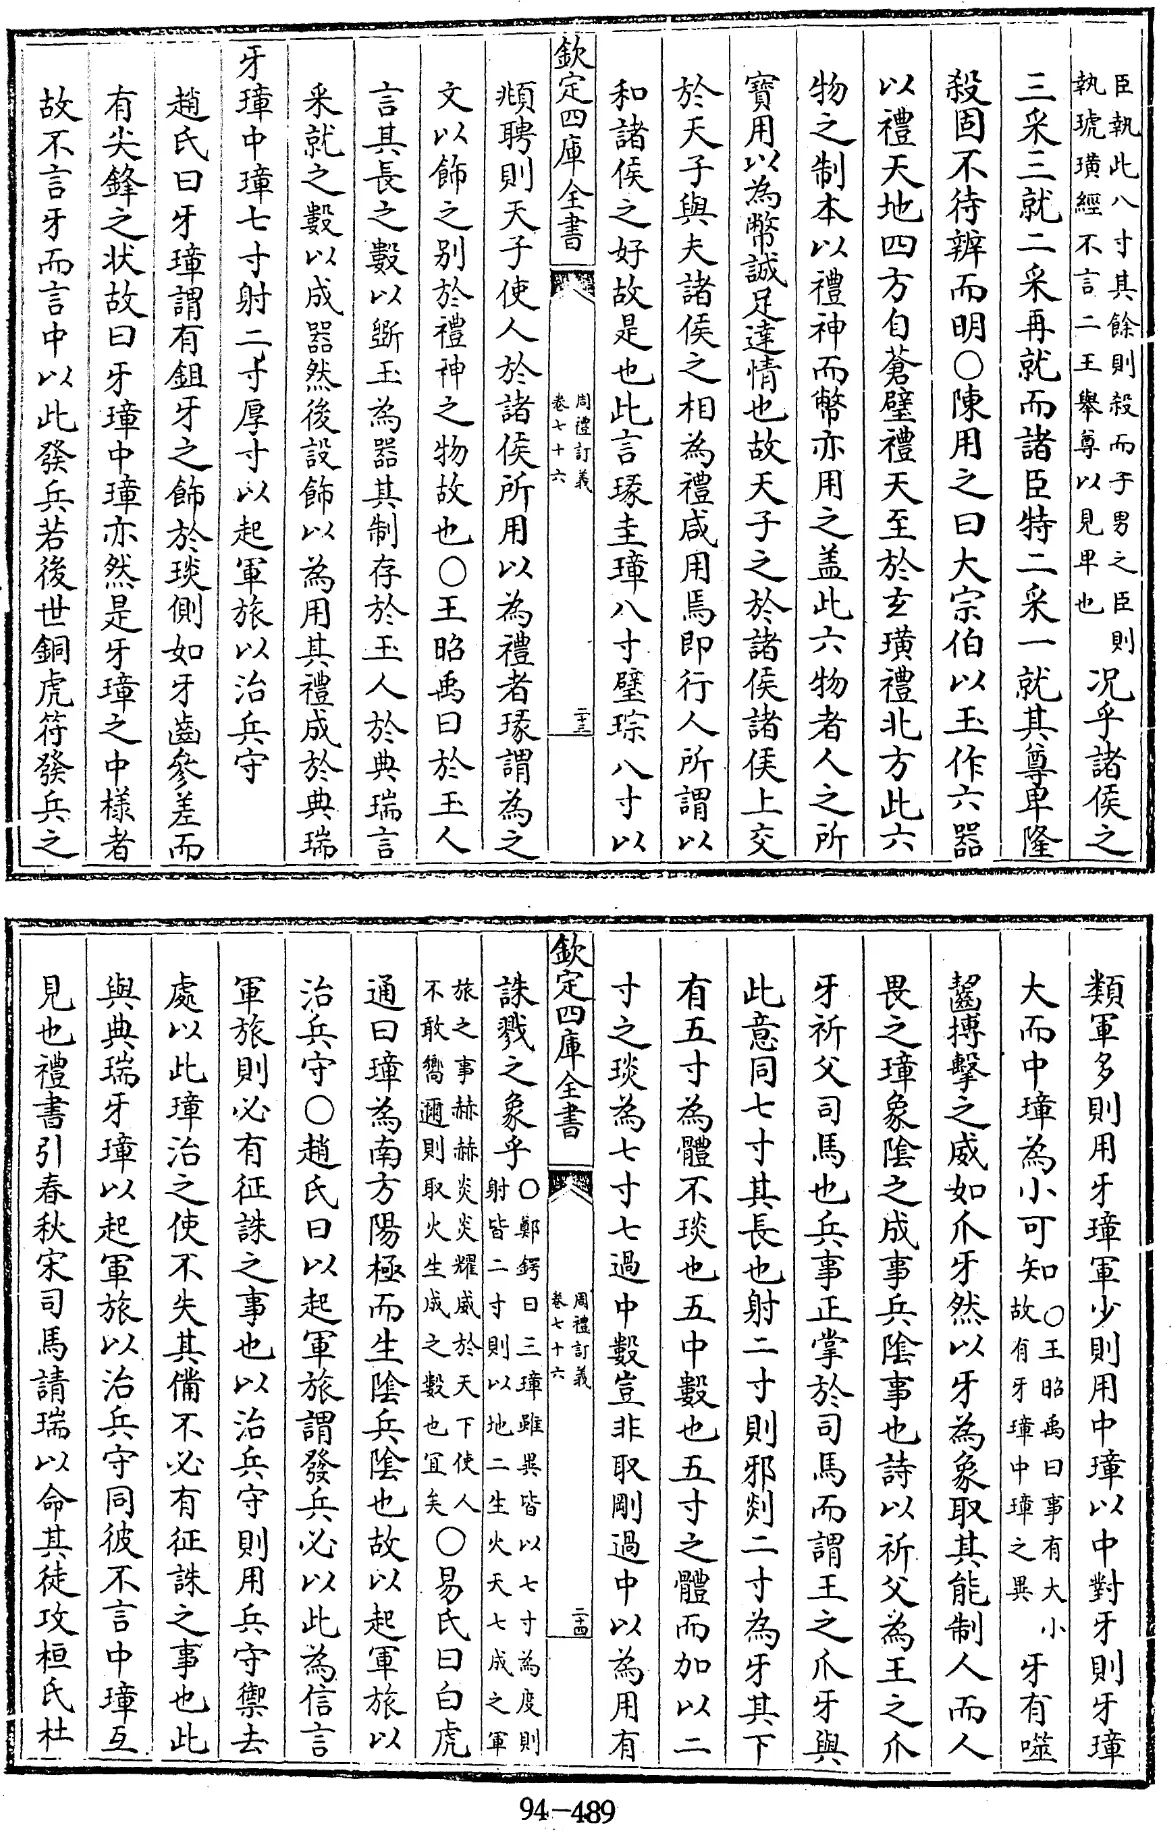 臣執此八寸其餘則殺而子男之臣則
執琥璜經不言二王舉尊以見卑也
况乎諸侯之
三采三就二采再就而諸臣特二采一就其尊卑隆
殺固不待辨而明○陳用之曰大宗伯以玉作六器
以禮天地四方自蒼璧禮天至於玄璜禮北方此六
物之制本以禮神而幣亦用之盖此六物者人之所
寶用以為幣誠足達情也故天子之於諸侯諸侯上交
於天子與夫諸侯之相為禮咸用焉即行人所謂以
和諸侯之好故是也此言瑑圭璋八寸璧琮八寸以
欽定四庫全書
周禮訂義
卷七十六
二十三
頫聘則天子使人於諸侯所用以為禮者瑑謂為之
文以飾之别於禮神之物故也○王昭禹曰於玉人
言其長之數以斲玉為器其制存於玉人於典瑞言
采就之數以成器然後設飾以為用其禮成於典瑞
牙璋中璋七寸射二寸厚寸以起軍旅以治兵守
趙氏曰牙璋謂有鉏牙之飾於琰側如牙齒參差而
有尖鋒之状故曰牙璋中璋亦然是牙璋之中樣者
故不言牙而言中以此發兵若後世銅虎符發兵之
類軍多則用牙璋軍少則用中璋以中對牙則牙璋
大而中璋為小可知
○王昭禹曰事有大小
故有牙璋中璋之異
牙有噬
齧搏擊之威如爪牙然以牙為象取其能制人而人
畏之璋象陰之成事兵陰事也詩以祈父為王之爪
牙祈父司馬也兵事正掌於司馬而謂王之爪牙與
此意同七寸其長也射二寸則邪剡二寸為牙其下
有五寸為體不琰也五中數也五寸之體而加以二
寸之琰為七寸七過中數豈非取剛過中以為用有
欽定四庫全書
周禮訂義
卷七十六
二十四
誅戮之象乎
○鄭鍔曰三璋雖異皆以七寸為度則
射皆二寸則以地二生火天七成之軍
旅之事赫赫炎炎耀威於天下使人
不敢嚮邇則取火生成之數也宜矣
○易氏曰白虎
通曰璋為南方陽極而生陰兵陰也故以起軍旅以
治兵守○趙氏曰以起軍旅謂發兵必以此為信言
軍旅則必有征誅之事也以治兵守則用兵守禦去
處以此璋治之使不失其備不必有征誅之事也此
與典瑞牙璋以起軍旅以治兵守同彼不言中璋互
見也禮書引春秋宋司馬請瑞以命其徒攻桓氏杜
94-489